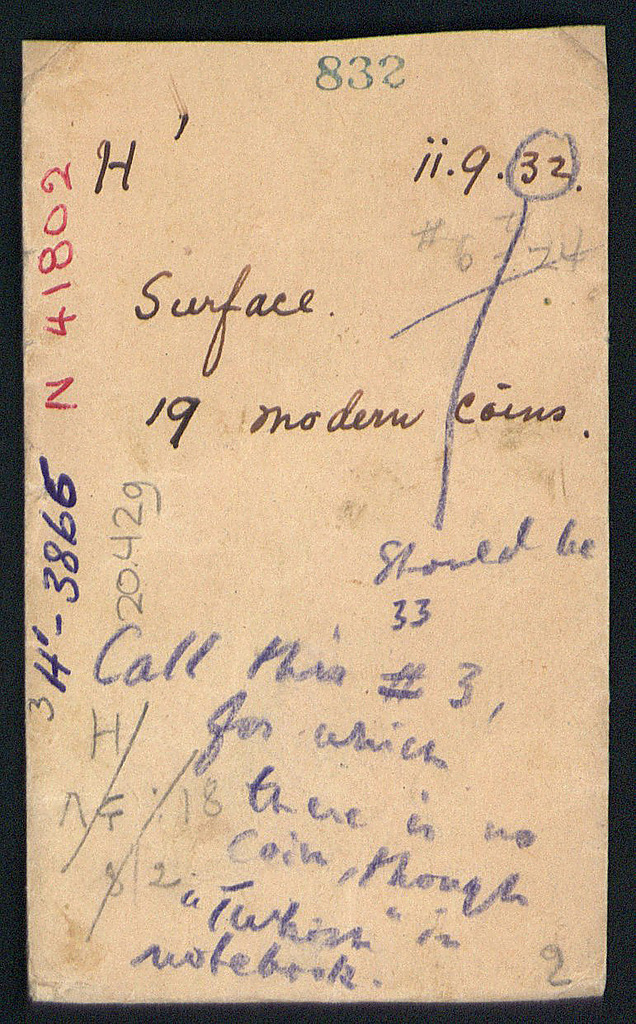 832
H'
ii.9.32.
# 6 # 24
Surface.
19 modern coins.
N 41802
H'-3865
20.429
3
Should be
33
Call this # 3,
for which
there is no
coin, though
"Turkish" in
notebook.
H
:18
812
2